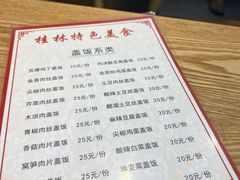 桂林特色美食
盖饭系类
宫爆鸡丁盖饭 25元/份
鱼香肉丝盖饭 25元/份
尖椒肉丝盖饭 25元/份
芹菜肉丝盖饭 25元/份
木须肉盖饭 25元/份
青椒肉丝盖饭 25元/份
香菇肉片盖饭 25元/份
窝笋肉片盖饭 25元/份
肉沫酸豆角盖饭 25元/份
韭菜炒鸡蛋盖饭 25元/份
土豆肉丝盖饭 25元/份
酸辣土豆丝盖饭 20元/份
醋溜土豆丝盖饭 20元/份
麻辣豆腐盖饭 20元/份
尖椒鸡蛋盖饭 20元/份
酸辣白菜盖饭 20元/份
油麦菜盖饭 20元/份